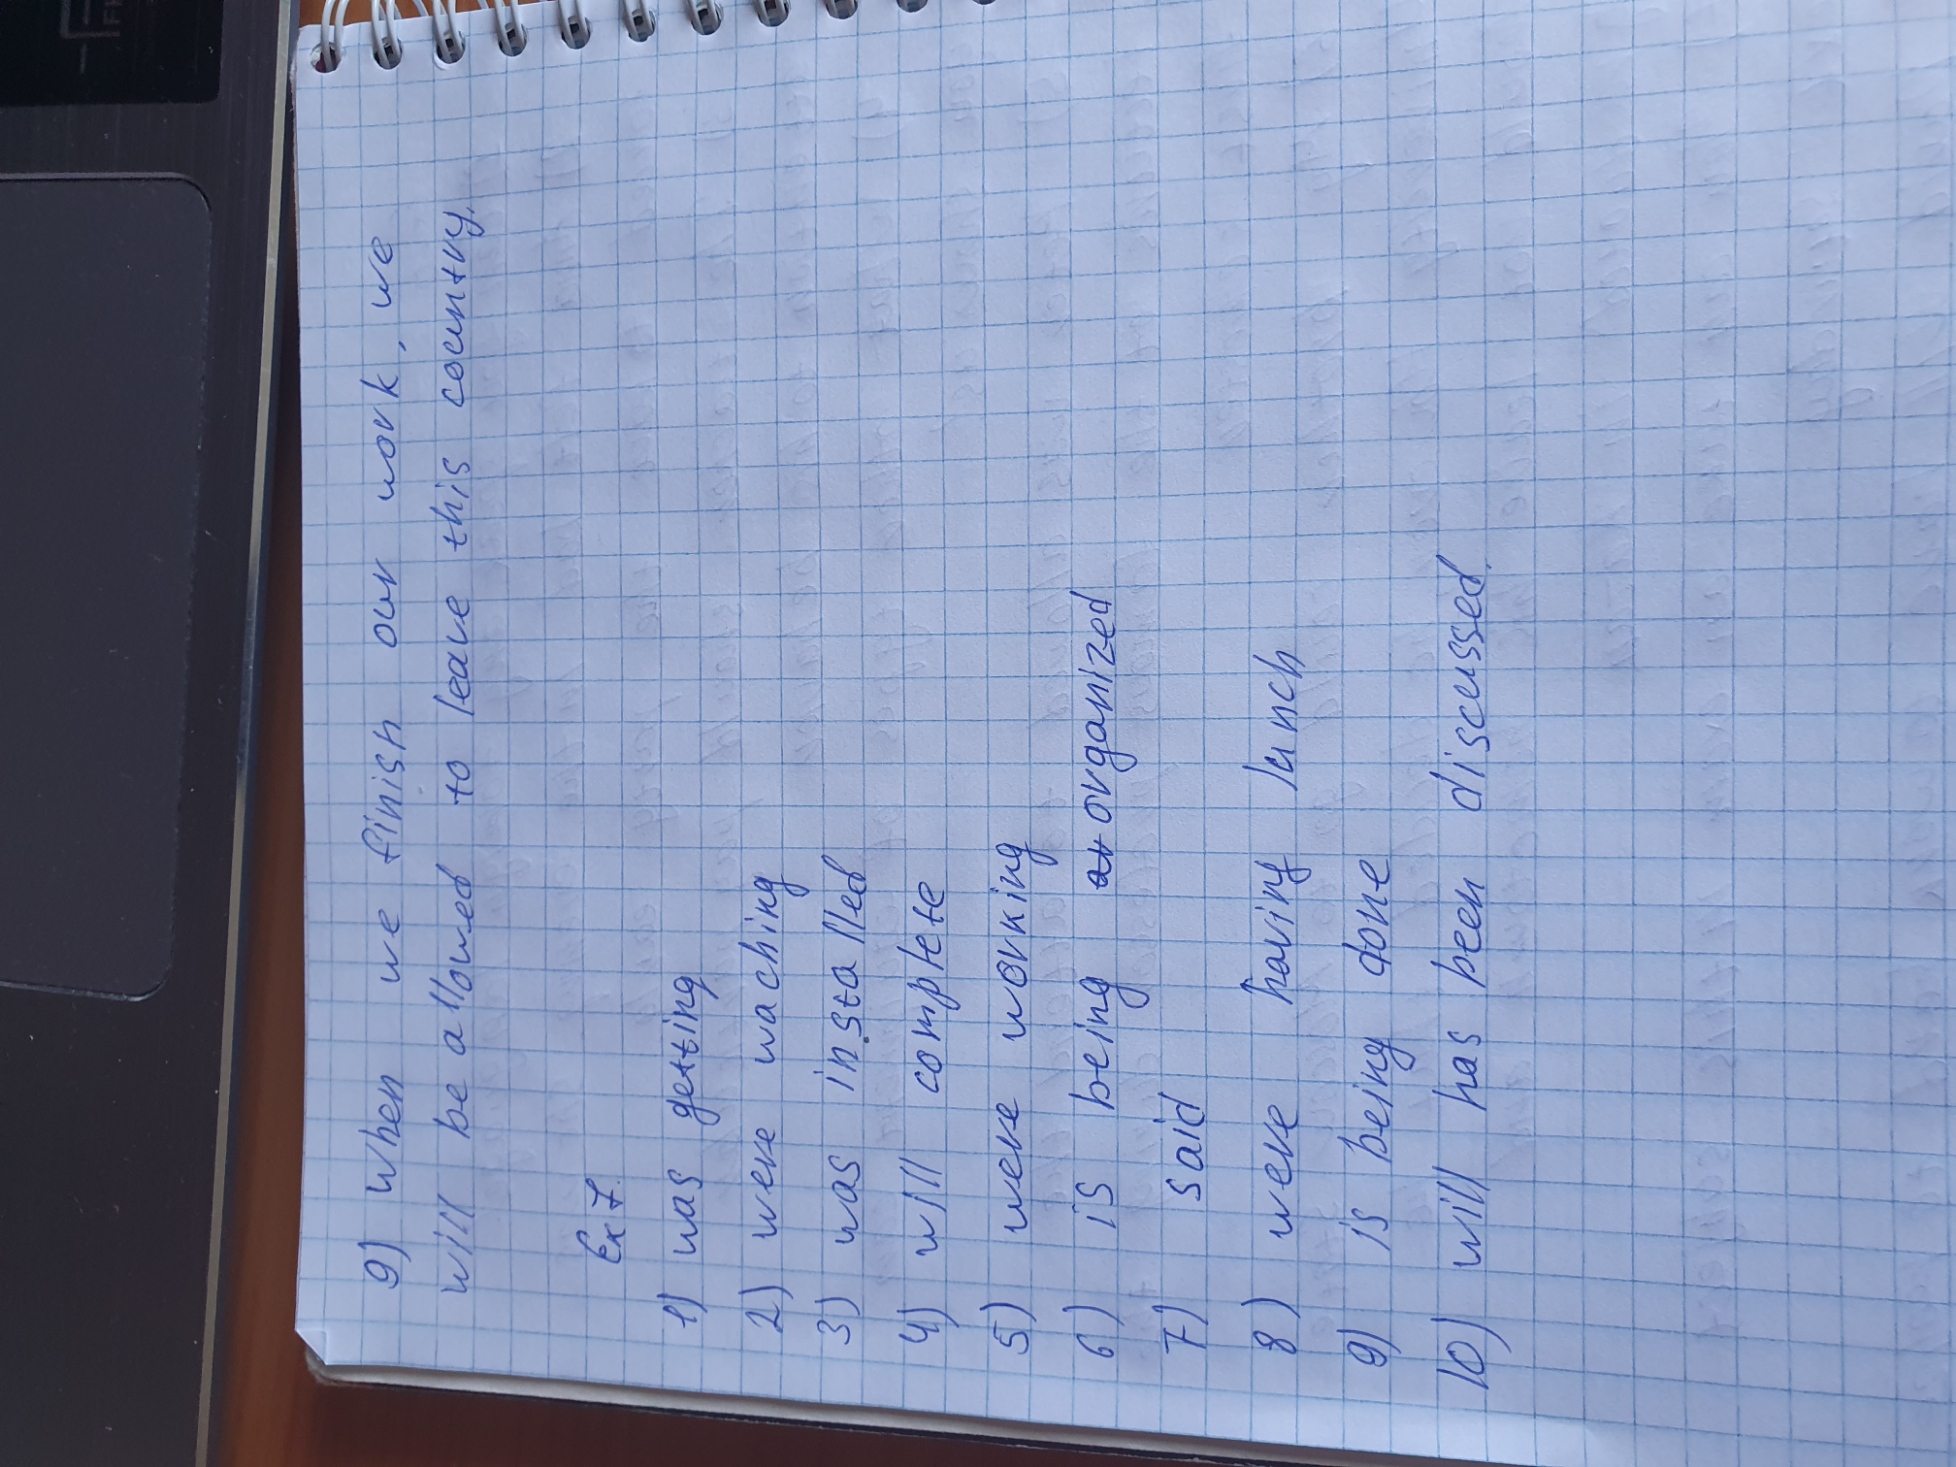 9) When we finish our work, we
will be allowed to leave this country.
Ex 7.
1) was getting
2) were waching
3) was installed
4) will complete
5) were working
6) is being organized
7) said
8) were having lunch
9) is being done
10) will has been discussed.